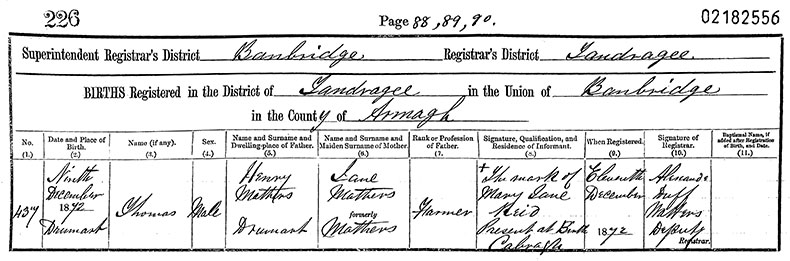 226
Page 88, 89, 90.
02182556
Superintendent Registrar's District Banbridge Registrar's District Tandragee
BIRTHS Registered in the District of Tandragee in the Union of Banbridge
in the County of Armagh
No. (1.)
Date and Place of Birth. (2.)
Name (if any). (3.)
Sex. (4.)
Name and Surname and Dwelling-place of Father. (5.)
Name and Surname and Maiden Surname of Mother. (6.)
Rank or Profession of Father. (7.)
Signature, Qualification, and Residence of Informant. (8.)
When Registered. (9.)
Signature of Registrar. (10.)
Baptismal Name, if added after Registration of Birth, and Date. (11.)
437
Ninth
December
1872
Drumart
Thomas
Male
Henry
Mathers
Drumart
Jane
Mathers
formerly
Mathers
Farmer
+ The mark of
Mary Jane
Reid
Present at Birth
Cabragh
Eleventh
December
1872
Duff
Mathers
Deputy
Registrar.